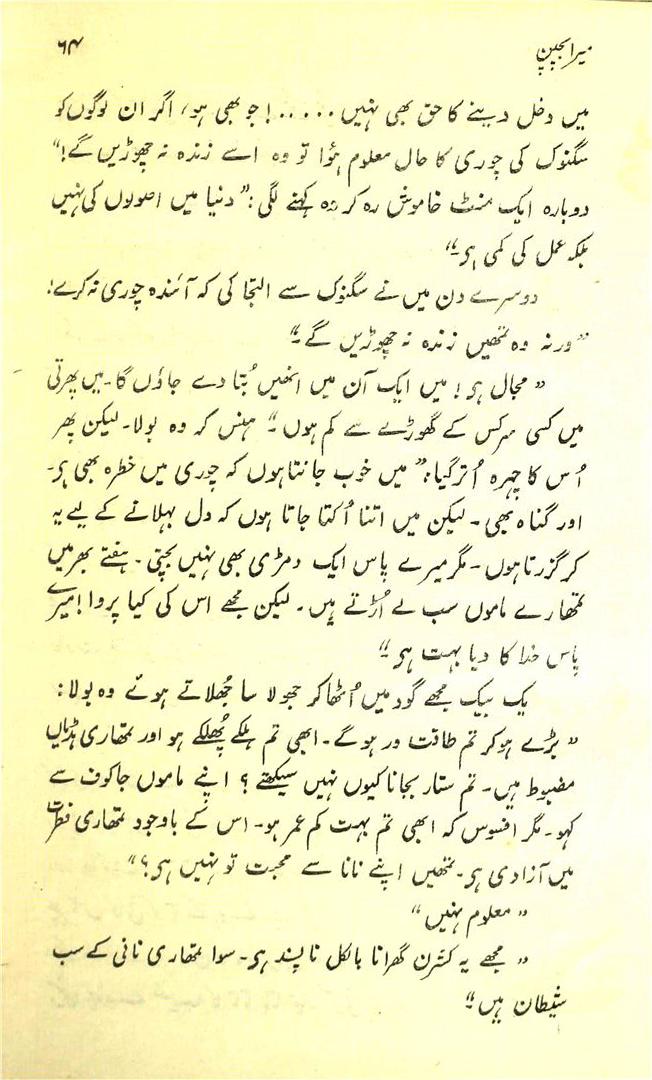 میرا بچپن ۶۴
میں دخل دینے کا حق بھی نہیں ۔۔۔۔۔! جو بھی ہو، اگر ان لوگوں کو
سگنوک کی چوری کا حال معلوم ہؤا تو وہ اسے زندہ نہ چھوڑیں گے!"
دوبارہ ایک منٹ خاموش رہ کر وہ کہنے لگی: "دنیا میں اصولوں کی نہیں
بلکہ عمل کی کمی ہی۔"
دوسرے دن میں نے سگنوک سے التجا کی کہ آئندہ چوری نہ کرے!
"ورنہ وہ تمھیں زندہ نہ چھوڑیں گے۔"
"مجال ہی! میں ایک آن میں انھیں بُتا دے جاؤں گا۔ میں پھرتی
میں کسی سرکس کے گھوڑے سے کم ہوں۔" ہنس کر وہ بولا۔ لیکن پھر
اُس کا چہرہ اُتر گیا: "میں خوب جانتا ہوں کہ چوری میں خطرہ بھی ہی۔
اور گناہ بھی۔ لیکن میں اتنا اُکتا جاتا ہوں کہ دل بہلانے کے لیے یہ
کر گزرتا ہوں۔ مگر میرے پاس ایک دمڑی بھی نہیں بچتی۔ ہفتے بھر میں
تمھارے ماموں سب لے اُڑتے ہیں۔ لیکن مجھے اس کی کیا پروا! میرے
پاس خدا کا دیا بہت ہی۔"
یک بیک مجھے گود میں اُٹھا کر جھولا سا جُھلاتے ہوئے وہ بولا:
"بڑے ہو کر تم طاقت ور ہو گے۔ ابھی تم ہلکے پُھلکے ہو اور تمھاری ہڈیاں
مضبوط ہیں۔ تم ستار بجانا کیوں نہیں سیکھتے؟ اپنے ماموں جاکوف سے
کہو۔ مگر افسوس کہ ابھی تم بہت کم عمر ہو۔ اس کے باوجود تمھاری فطرت
میں آزادی ہی۔ تمھیں اپنے نانا سے محبت تو نہیں ہی؟"
"معلوم نہیں"
"مجھے یہ کشرن گھرانا بالکل ناپسند ہی۔ سوا تمھاری نانی کے سب
شیطان ہیں۔"